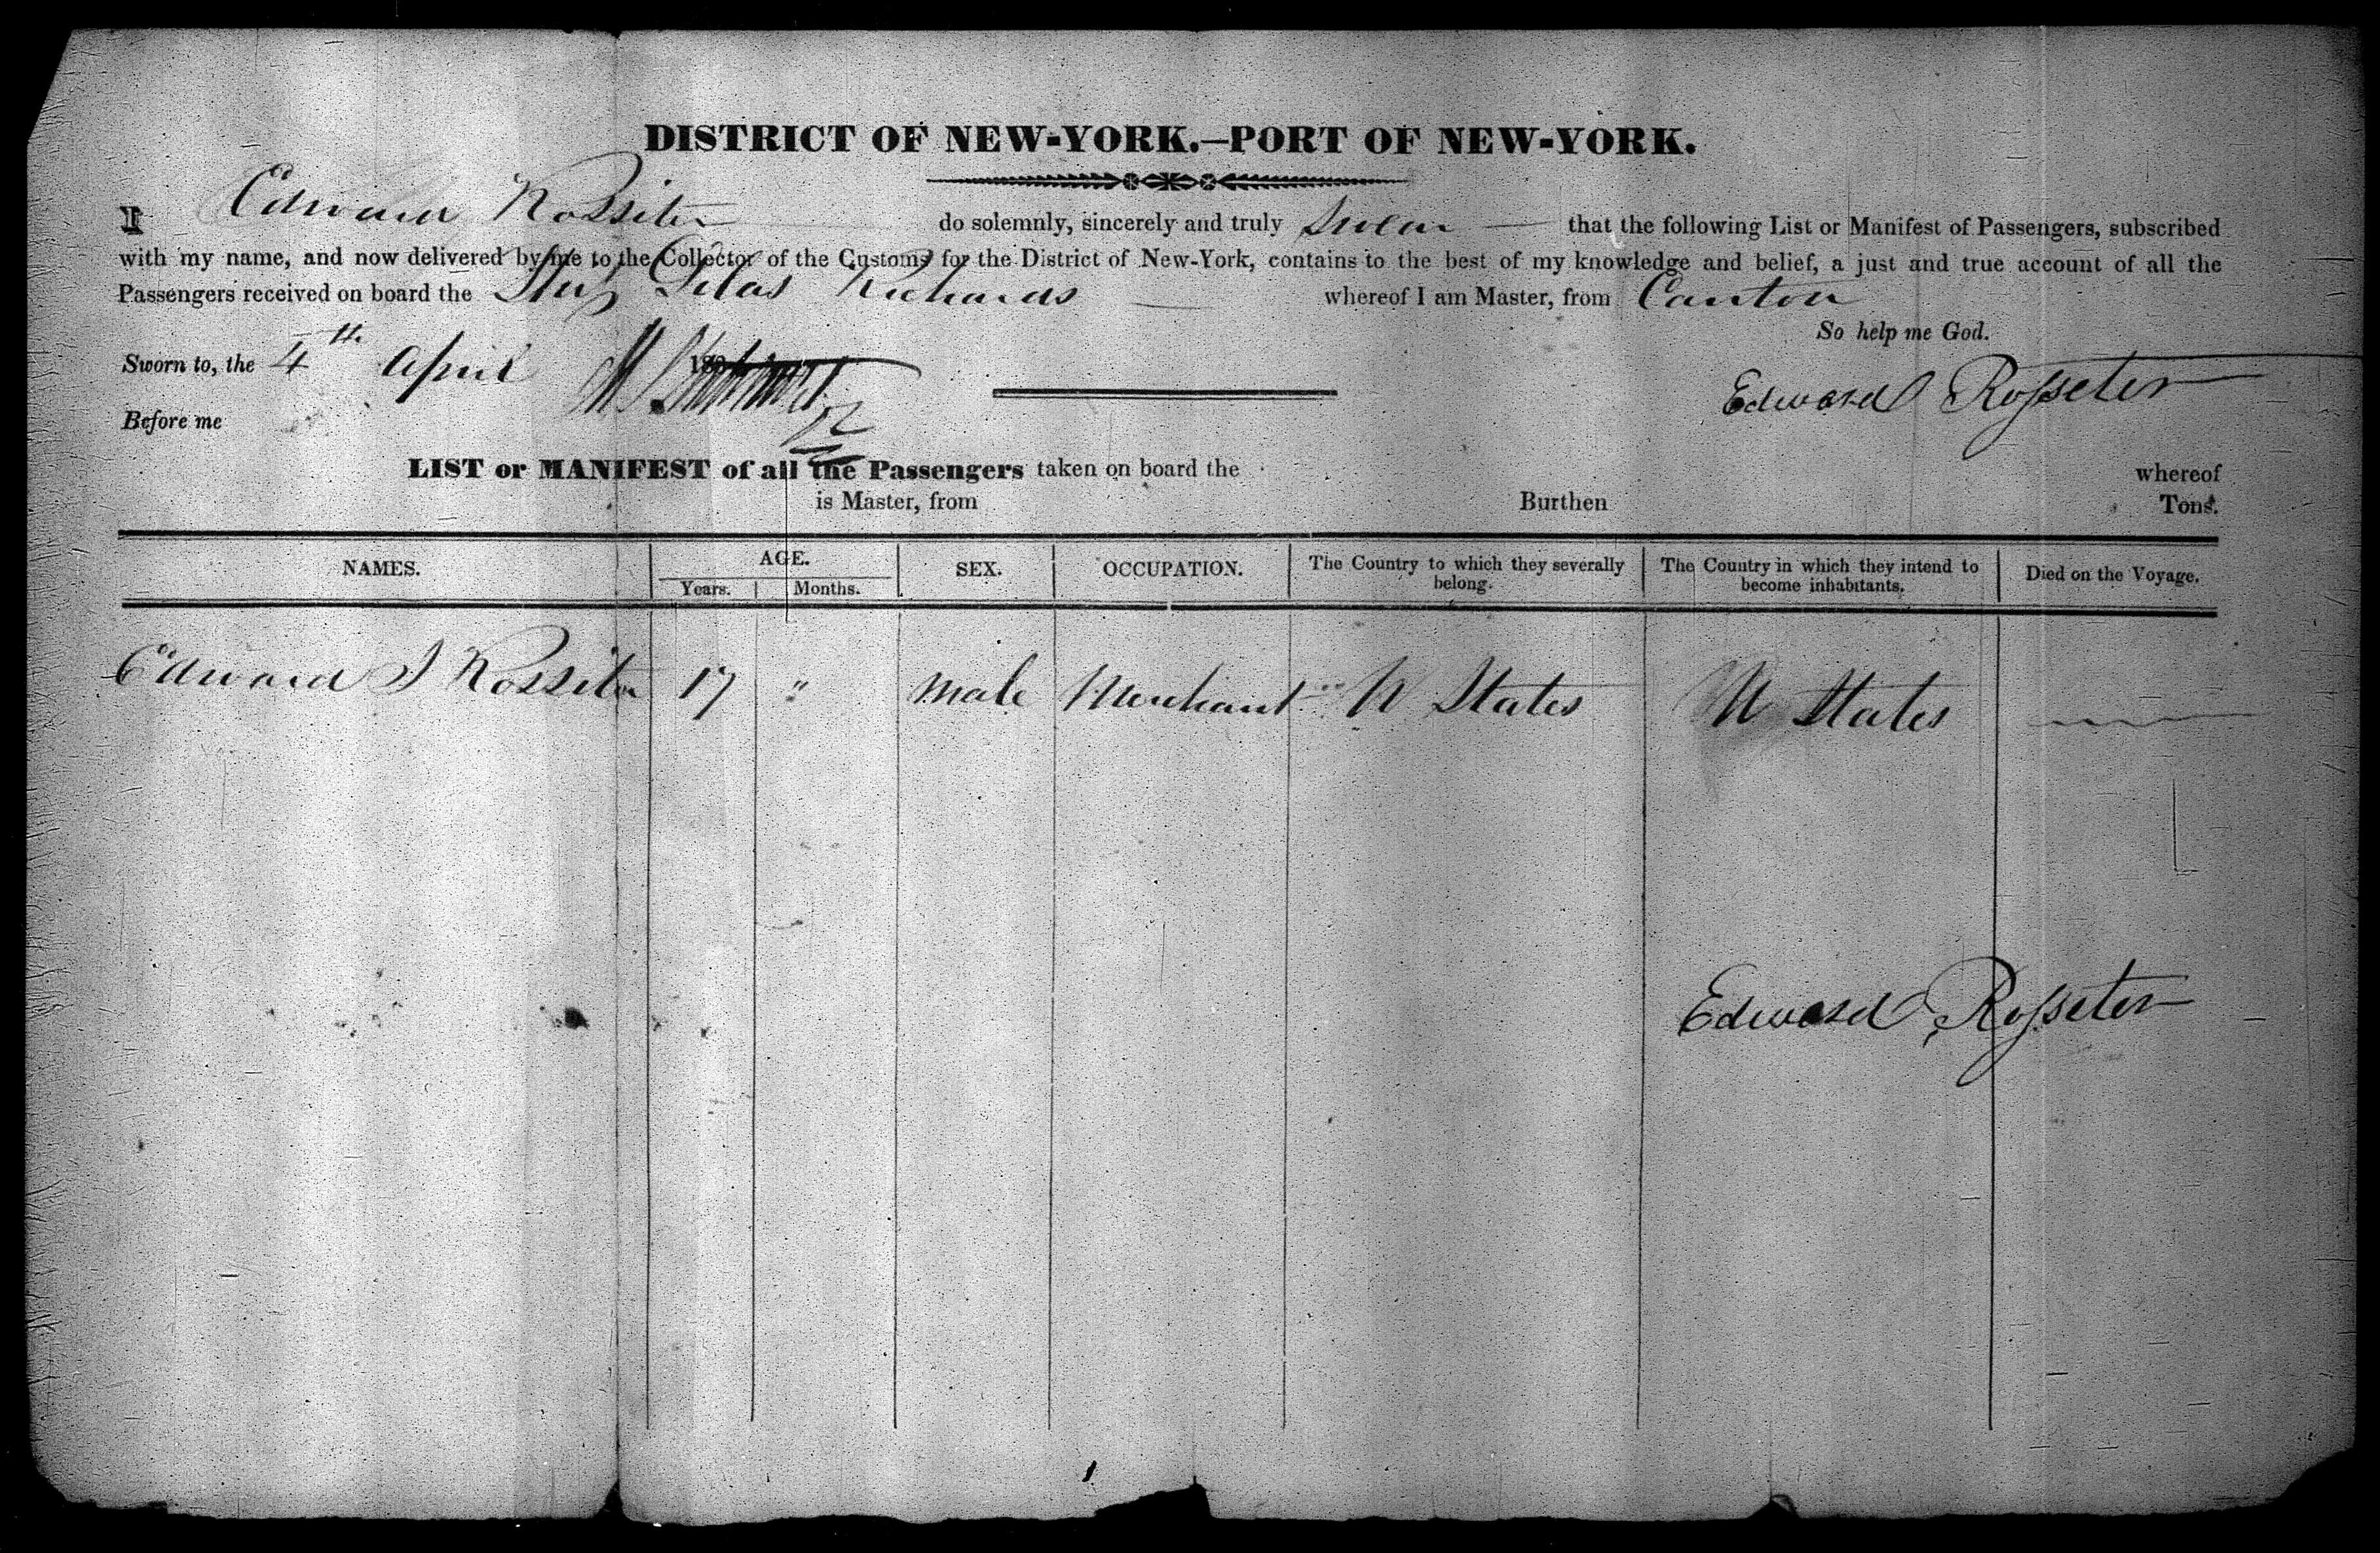 DISTRICT OF NEW-YORK.—PORT OF NEW-YORK.
I Edward Rossiter do solemnly, sincerely and truly swear that the following List or Manifest of Passengers, subscribed
with my name, and now delivered by me to the Collector of the Customs for the District of New-York, contains to the best of my knowledge and belief, a just and true account of all the
Passengers received on board the Ship Silas Richards whereof I am Master, from Canton
So help me God.
Sworn to, the 4th April 183
Edward Rosseter
Before me
LIST or MANIFEST of all the Passengers taken on board the whereof
is Master, from Burthen Tons.
NAMES. AGE. SEX. OCCUPATION. The Country to which they severally belong. The Country in which they intend to become inhabitants. Died on the Voyage.
Years. Months.
Edward J Rossiter 17 " male Merchant U States U States
Edward Rosseter